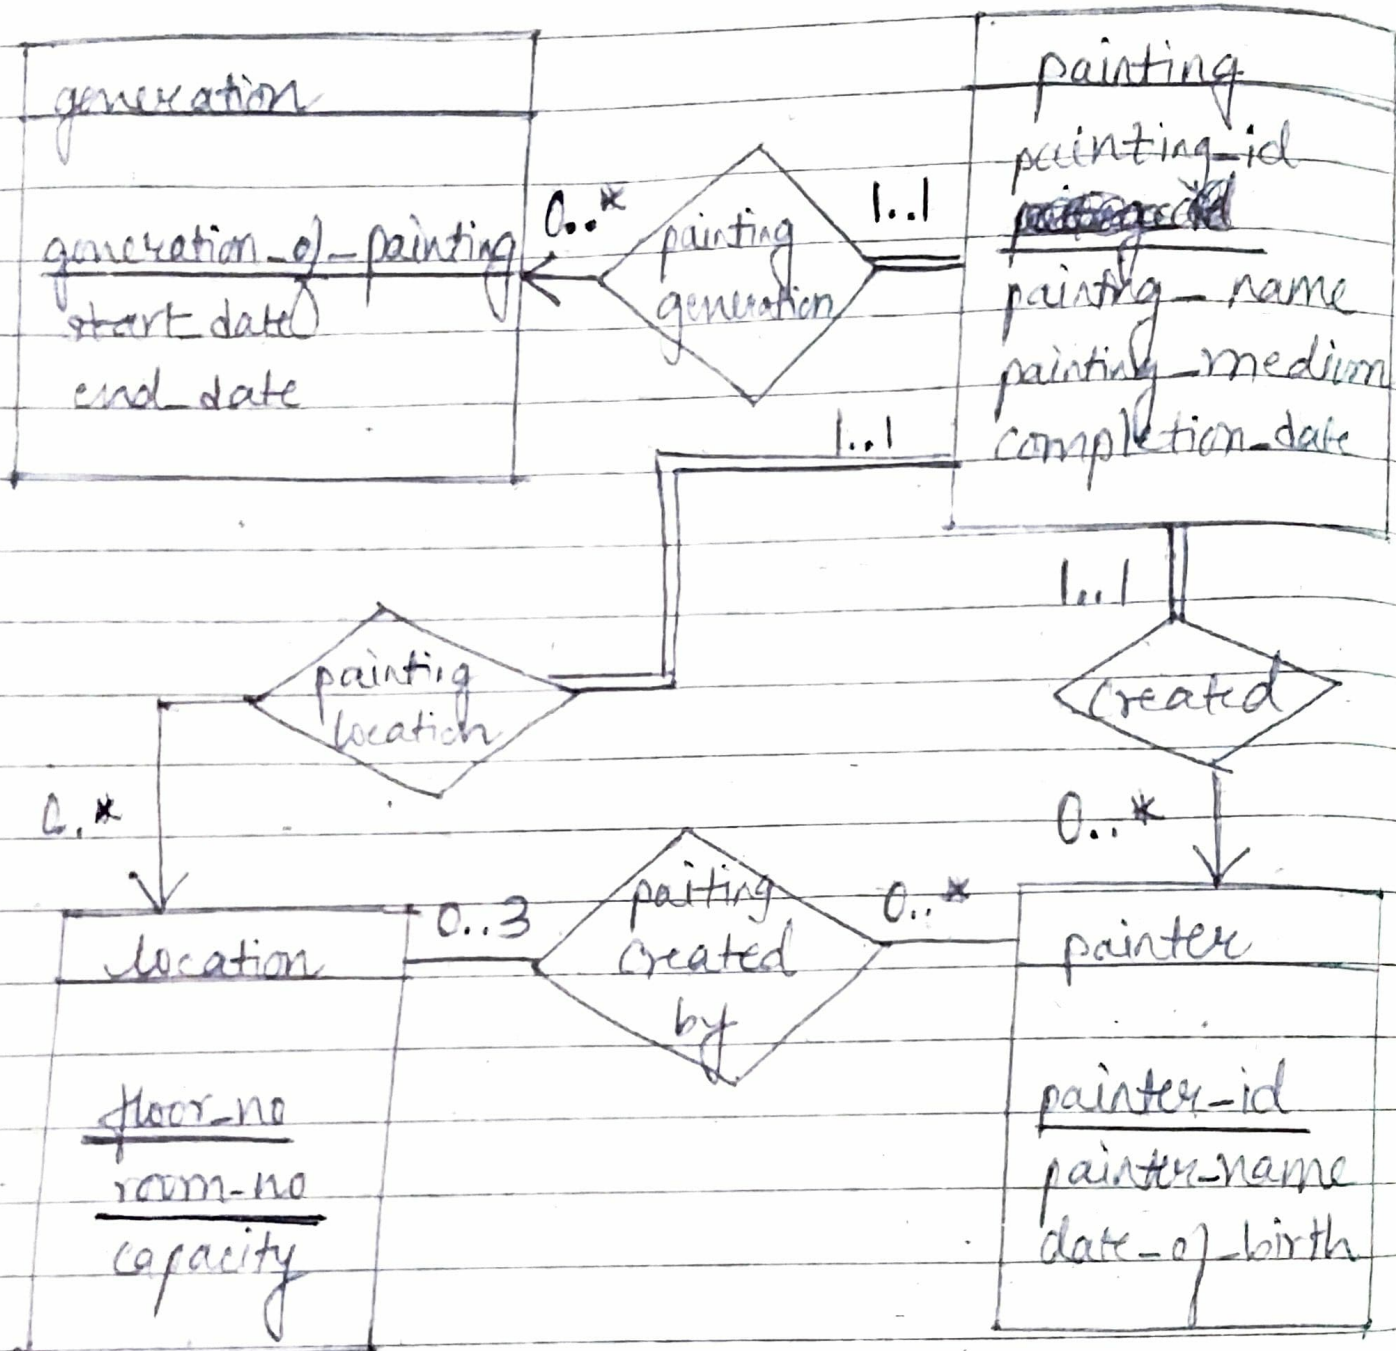 generation
generation_of_painting
start_date
end_date
0..*
painting
generation
1..1
painting
painting_id
painting_name
painting_medium
completion_date
1..1
painting
location
0..*
1..1
created
0..*
location
floor_no
room_no
capacity
0..3
paiting
created
by
0..*
painter
painter_id
painter_name
date_of_birth